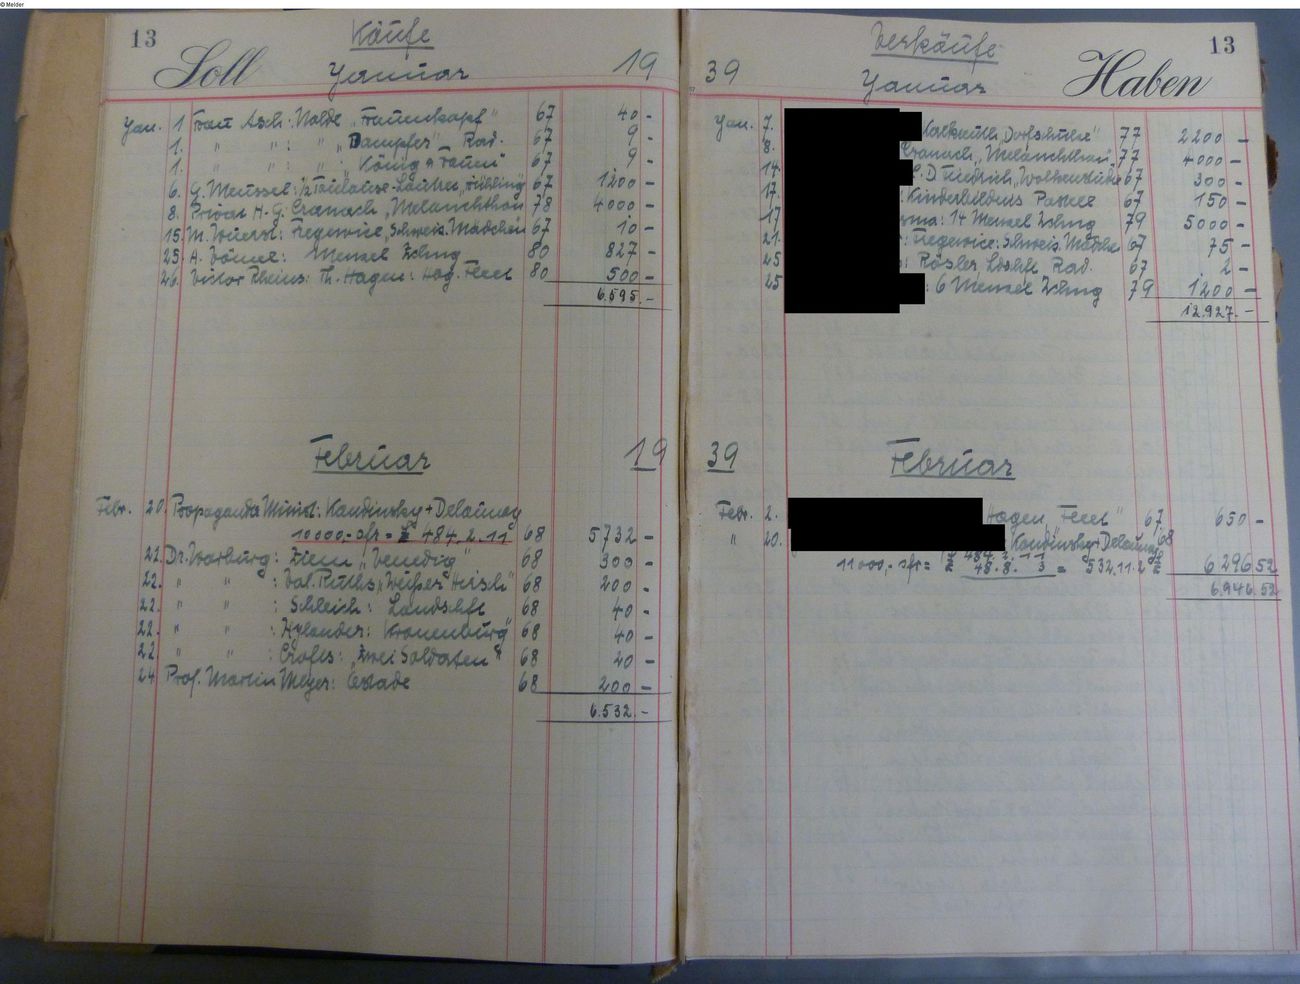 © Melder
13 Käufe
Soll Januar 19
Jan. 1 Frau Asch: Nolde „Frauenkopf" 67 40 -
1. " " : " „Dampfer" Rad. 67 9 -
1. " " : " „König + Frau" 67 9 -
6. G. Meussel: 1/2 Toulouse-Lautrec „Frühling" 67 1200 -
8. Privat H. G. Cranach „Melanchthon" 78 4000 -
15. M. : „Schweiz. Mädchen" 67 10 -
25. A. Dömel: Menzel Zchng 80 827 -
26. Victor Rheins: Th. Hagen: 80 500 -
6.595.-
Februar 19
Febr. 20. Propaganda Minist: Kandinsky + Delaunay
10000,- sfr = £ 484.2.11 68 5732 -
22. Dr. Warburg: Ziem „Venedig" 68 300 -
22. " " : Val. Ruths „Weißer Hirsch" 68 200 -
22. " " : Schleich: Landschft 68 40 -
22. " " : Hylander: „Kronenburg" 68 40 -
22. " " : Crofts: „Zwei Soldaten" 68 20 -
24 Prof. Martin Meyer: 68 200 -
6.532.-
Verkäufe 13
39 Januar Haben
Jan. 7. Kalkreuth „Dorfschule" 77 2200 -
8. Cranach „Melanchthon" 77 4000 -
14. C. D Friedrich „Wolkenstudie 67 300 -
17. : Kinderbildnis Pastell 67 150 -
17 : 14 Menzel Zchng 79 5000 -
21. : Schweiz. Mädchen 67 75 -
25 : Rösler Ldschft Rad. 67 2 -
25 : 6 Menzel Zchng 79 1200 -
12.927.-
39 Februar
Febr. 2. Hagen 67 650 -
" 20. Kandinsky Delaunay 68
£ 484. 2. 11
11000,- sfr = £ 48. 8. 3 = 532.11.2 £ 6296 52
6.946.52